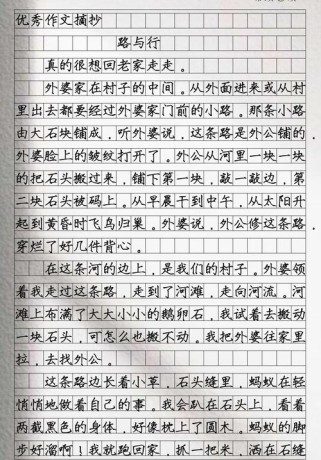 优秀作文摘抄
路与行
真的很想回老家走走。
外婆家在村子的中间。从外面进来或从村
里出去都要经过外婆家门前的小路。那条小路
由大石块铺成，听外婆说，这条路是外公铺的，
外婆脸上的皱纹打开了。外公从河里一块一块
的把石头搬过来，铺下第一块，敲一敲边，第
二块石头被码上。从早晨干到中午，从太阳升
起到黄昏时飞鸟归巢。外婆说，外公修这条路，
穿烂了好几件背心。
在这条河的边上，是我们的村子。外婆领
着我走过这条路，走到了河滩，走向河流。河
滩上布满了大大小小的鹅卵石，我试着去搬动
一块石头，可怎么也搬不动。我把外婆往家里
拉，去找外公。
这条路边长着小草，石头缝里，蚂蚁在轻
悄悄地做着自己的事。我会趴在石头上，看着
两截黑色的身体，好像枕上了圆木。蚂蚁的脚
步好溜啊！我就跑回家，抓一把米，洒在石缝